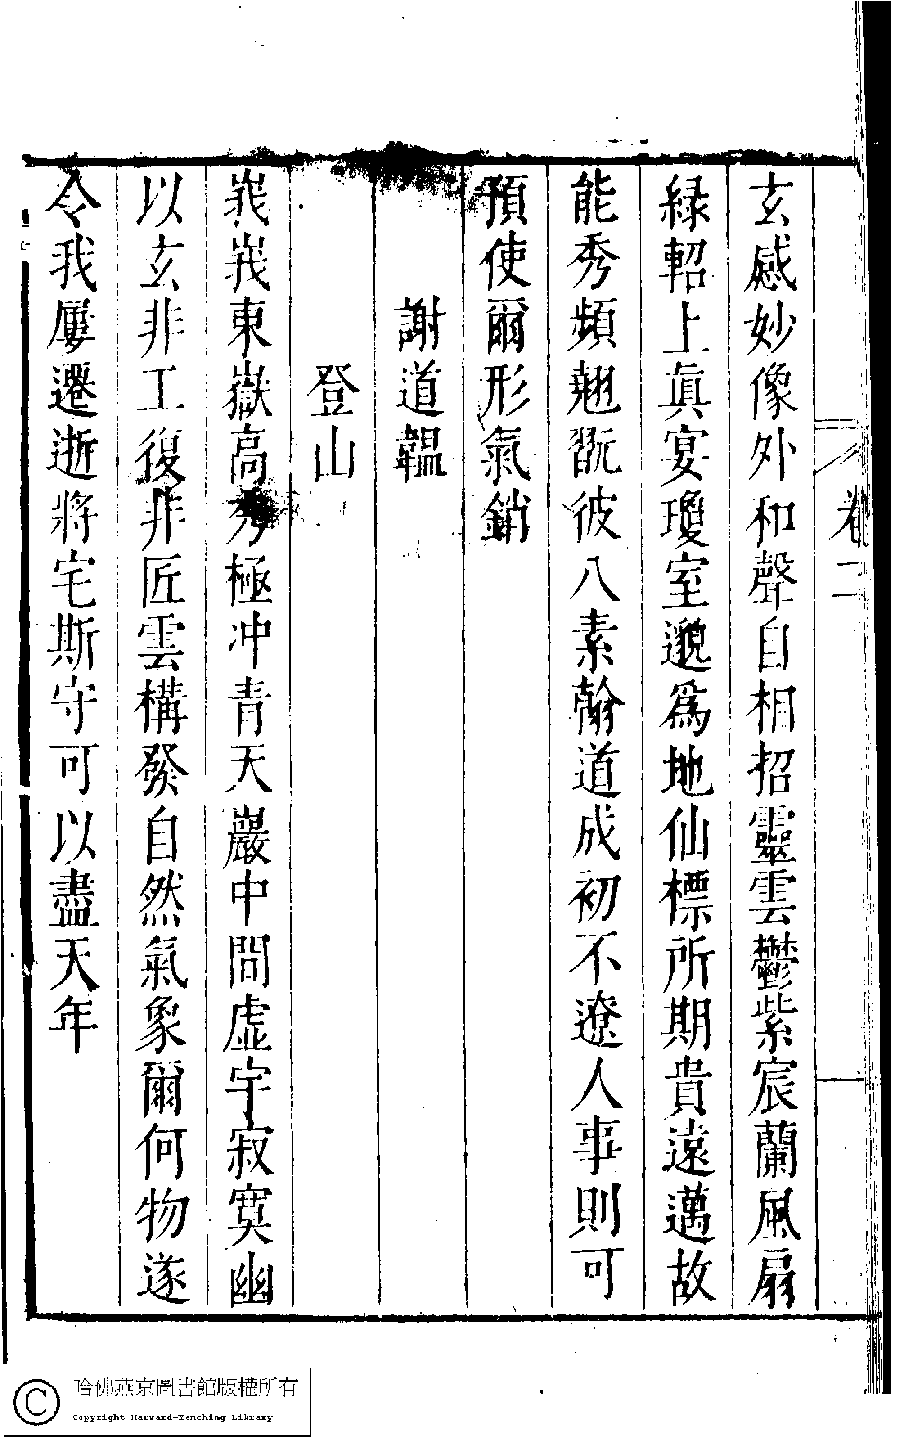 卷二
玄感妙像外和聲自相招靈雲鬱紫宸蘭風扇
緑軺上真宴瓊室邈爲地仙標所期貴遠邁故
能秀頻翹翫彼八素翰道成初不遼人事則可
預使爾形氣銷
謝道韞
登山
峩峩東嶽高秀極冲青天巖中間虛宇寂寞幽
以玄非工復非匠雲構發自然氣象爾何物遂
令我屢遷逝將宅斯守可以盡天年
哈佛燕京圖書館版權所有
Copyright Harvard-Yenching Library